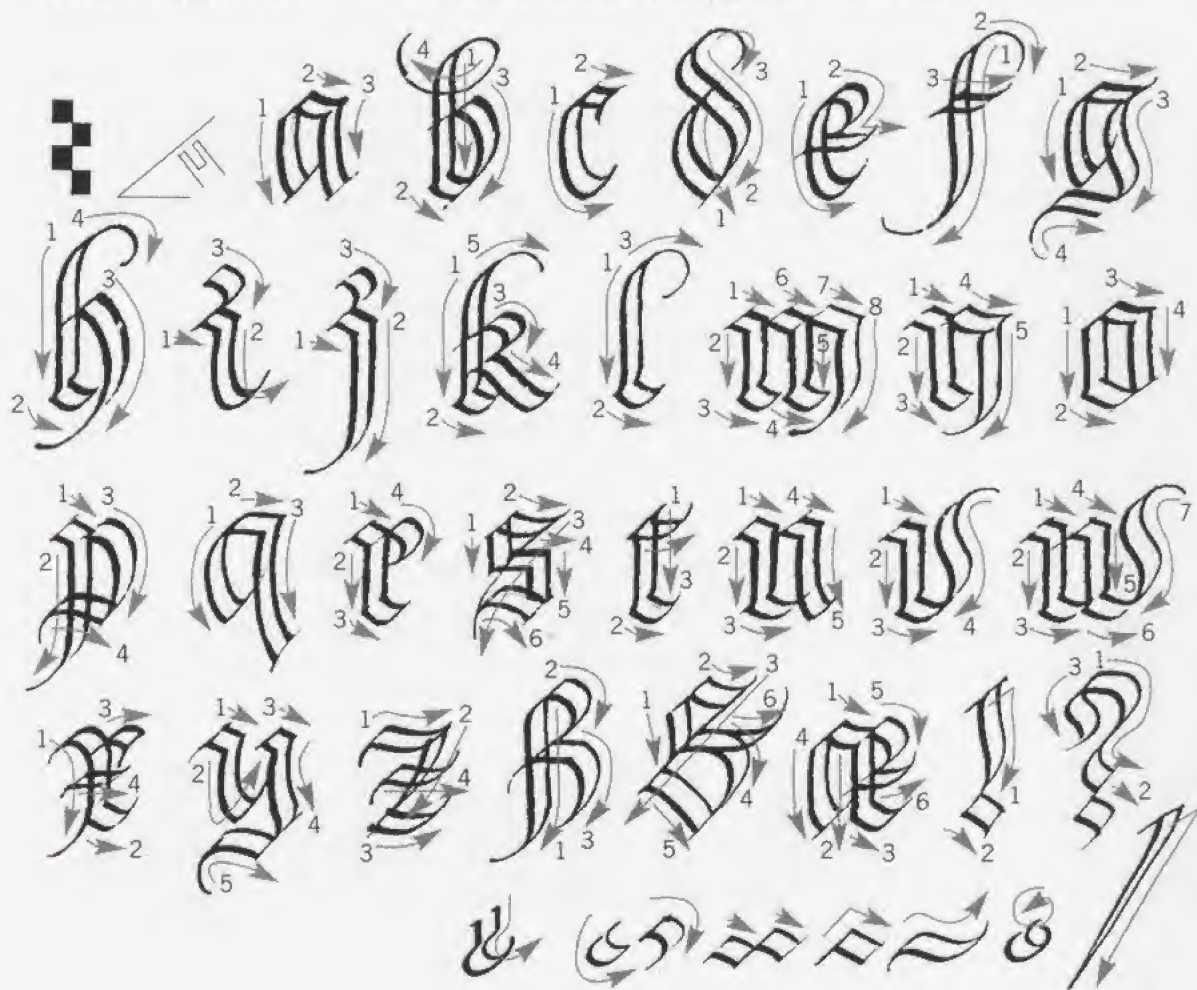 a b c d e f g
h i j k l m n o
p q r s t u v w
x y z ß ß æ ! ?